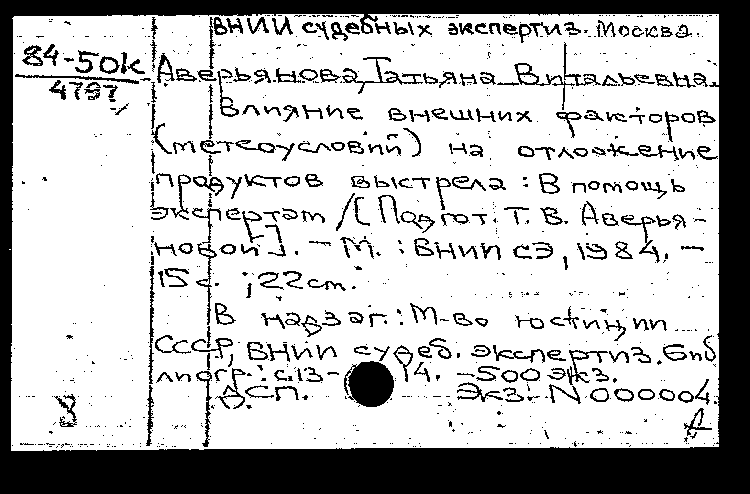 ВНИИ судебных экспертиз. Москва.
84-50К
4797
Аверьянова, Татьяна Витальевна.
Влияние внешних факторов
(метеоусловий) на отложение
продуктов выстрела : В помощь
экспертам / [Подгот. Т. В. Аверья-
новой]. — М. : ВНИИ СЭ, 1984. —
15 с. ; 22 см.
В надзаг. : М-во юстиции
СССР, ВНИИ судеб. экспертиз. Биб
лиогр. : с. 13-14. - 500 экз.
ДСП. Экз. N 000004.